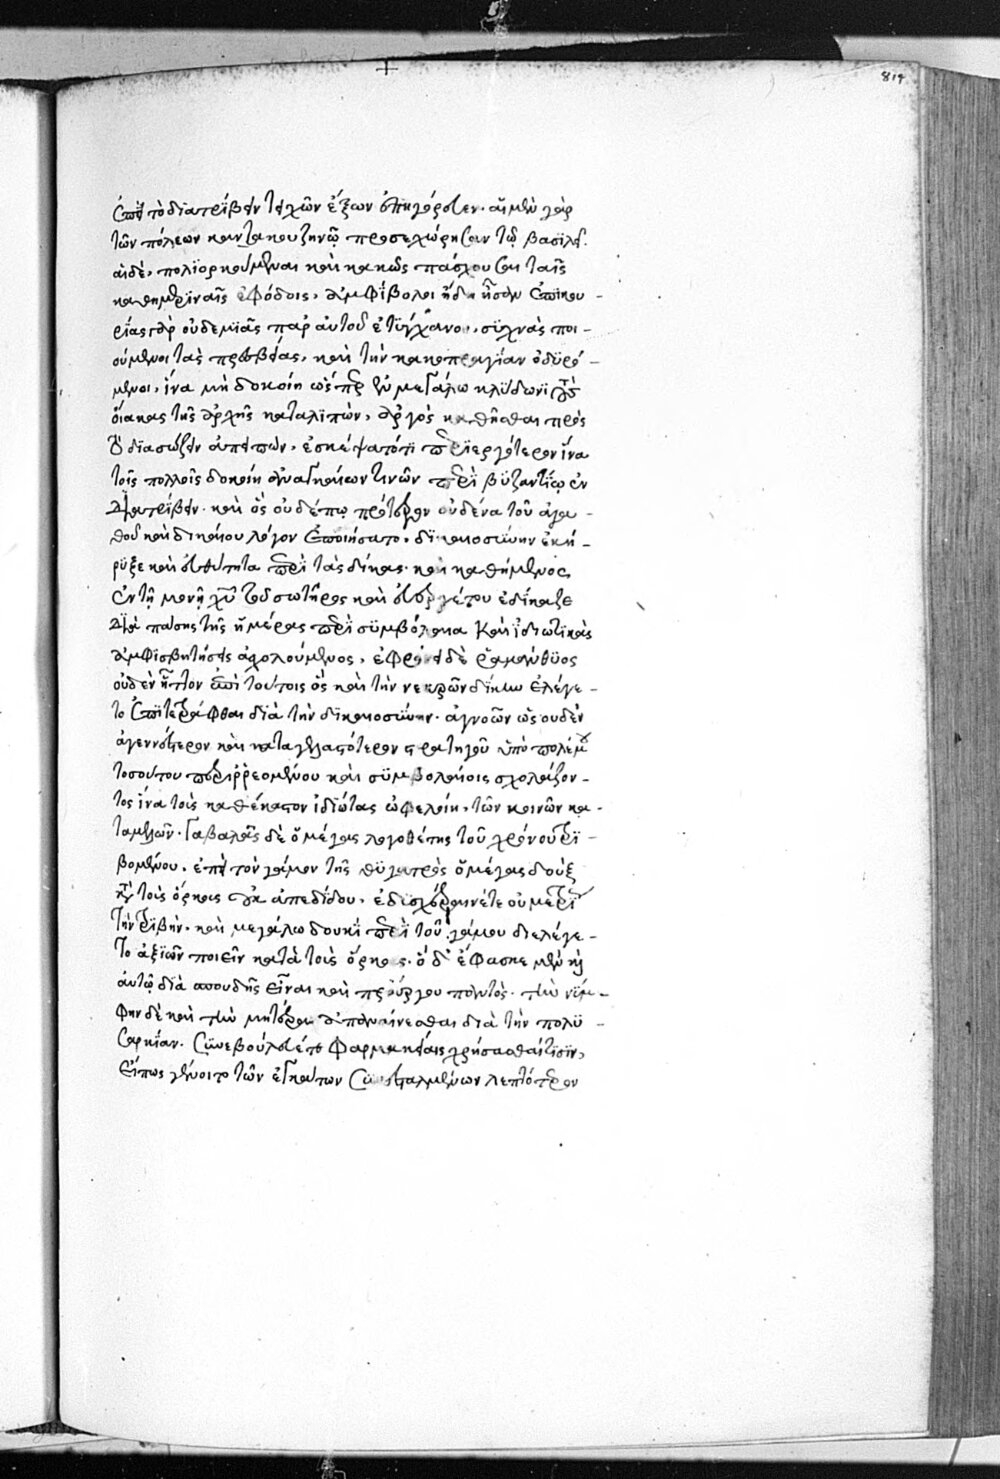 814
ἐπεὶ τὸ διατρίβειν τειχῶν ἔξων ἀπηγόρευεν. αἱ μὲν γὰρ
τῶν πόλεων καντακουζηνῷ προσεχώρησαν τῷ βασιλεῖ.
αἱ δὲ, πολϊορκούμεναι καὶ κακῶς πάσχουσαι ταῖς
καθημερϊναῖς ἐφόδοις, ἀμφίβολοι ἤδη ἦσαν ἐπικου-
ρίας γὰρ οὐδεμϊᾶς παρ' αὐτοῦ ἐτύγχανον, συχνὰς ποι-
ούμενοι τὰς πρεσβείας, καὶ τὴν κακοπραγίαν ὀδυρό-
μενοι, ἵνα μὴ δοκοίη ὥσπερ ἐν μεγάλω κλύδωνι τοὺς
οἴακας τῆς ἀρχῆς καταλιπὼν, ἀργὸς καθῆσθαι πρὸς
τὸ διασώζειν ἀπειπὼν, ἐσκέψατό τι περϊεργότερον ἵνα
τοῖς πολλοῖς δοκοίη ἀναγκαίων τινῶν περὶ βυζαντίῳ ἐν
διατρίβειν. καὶ ὃς οὐδέπω πρότερον οὐδένα τοῦ ἀγα-
θοῦ καὶ δικαίου λόγον ἐποιήσατο, δϊκαιοσύνην ἐκή-
ρυξε καὶ εὐθύτητα περὶ τὰς δίκας. καὶ καθήμενος
ἐν τῇ μονῇ χυ τοῦ σωτῆρος καὶ εὐεργέτου ἐδίκαζε
διὰ πάσης τῆς ἡμέρας περὶ συμβόλαια καὶ ἰδιωτϊκὰς
ἀμφισβητήσεις ἀσχολούμενος, ἐφρόνει δὲ ῥαμάνθυος
οὐδὲν ἧττον ἐπὶ τούτοις ὃς καὶ τὴν νεκρῶν δίκην ἐλέγε-
το ἐπϊτετράφθαι διὰ τὴν δϊκαιοσύνην. ἀγνοῶν ὡς οὐδὲν
ἀγεννότερον καὶ καταγελαστότερον στρατηγοῦ ὑπὸ πολέμου
τοσούτου περιρρεομένου καὶ συμβολαίοις σχολάζον-
τος ἵνα τοὺς καθέκαστον ἰδιώτας ὠφελοίη, τῶν κοινῶν κα-
ταμελῶν. Γαβαλᾶς δὲ ὁ μέγας λογοθέτης τοῦ χρόνου τρϊ-
βομένου, ἐπεὶ τὸν γάμον τῆς θυγατρὸς ὁ μέγας δοὺξ
κατὰ τοὺς ὅρκους οὐκ ἀπεδίδου, ἐδυσχέραινέ τε οὐ μετρίαν
τὴν τριβὴν. καὶ μεγάλω δουκὶ περὶ τοῦ γάμου διελέγε-
το ἀξιῶν ποιεῖν κατὰ τοὺς ὅρκους. ὁ δ' ἔφασκε μὲν καὶ
αὐτῷ διὰ σπουδῆς εἶναι καὶ πρὸ ἔργου παντὸς. τὴν νύμ-
φην δὲ καὶ τὴν μητέρα ἀπαναίνεσθαι διὰ τὴν πολυ-
σαρκίαν. συνεβούλευέ τε φαρμακείαις χρήσασθαί τισϊν,
εἴπως γένοιτο τῶν ἐγκάτων συνεσταλμένων λεπτότερον